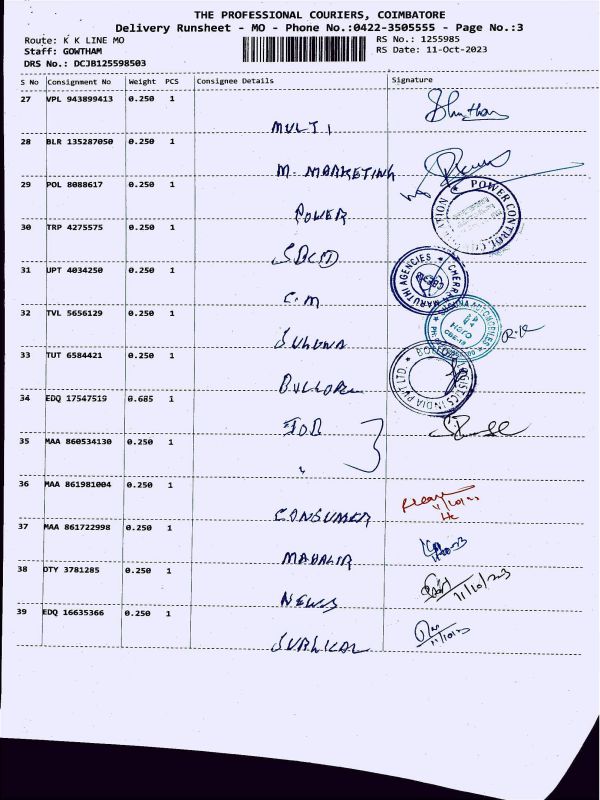 THE PROFESSIONAL COURIERS, COIMBATORE
Delivery Runsheet - MO - Phone No.:0422-3505555 - Page No.:3
Route: K K LINE MO RS No.: 1255985
Staff: GOWTHAM RS Date: 11-Oct-2023
DRS No.: DCJB125598503
S No Consignment No Weight PCS Consignee Details Signature
27 VPL 943899413 0.250 1
MULTI
28 BLR 135287050 0.250 1
M. MARKETING
29 POL 8088617 0.250 1
POWER
POWER CONTROL
30 TRP 4275575 0.250 1
31 UPT 4034250 0.250 1
C.M
MARUTHI AGENCIES
32 TVL 5656129 0.250 1
33 TUT 6584421 0.250 1
INDIA PVT LTD.
34 EDQ 17547519 0.685 1
35 MAA 860534130 0.250 1
36 MAA 861981004 0.250 1
CONSUMER
37 MAA 861722998 0.250 1
38 DTY 3781285 0.250 1
NEWS
11/10/2023
39 EDQ 16635366 0.250 1